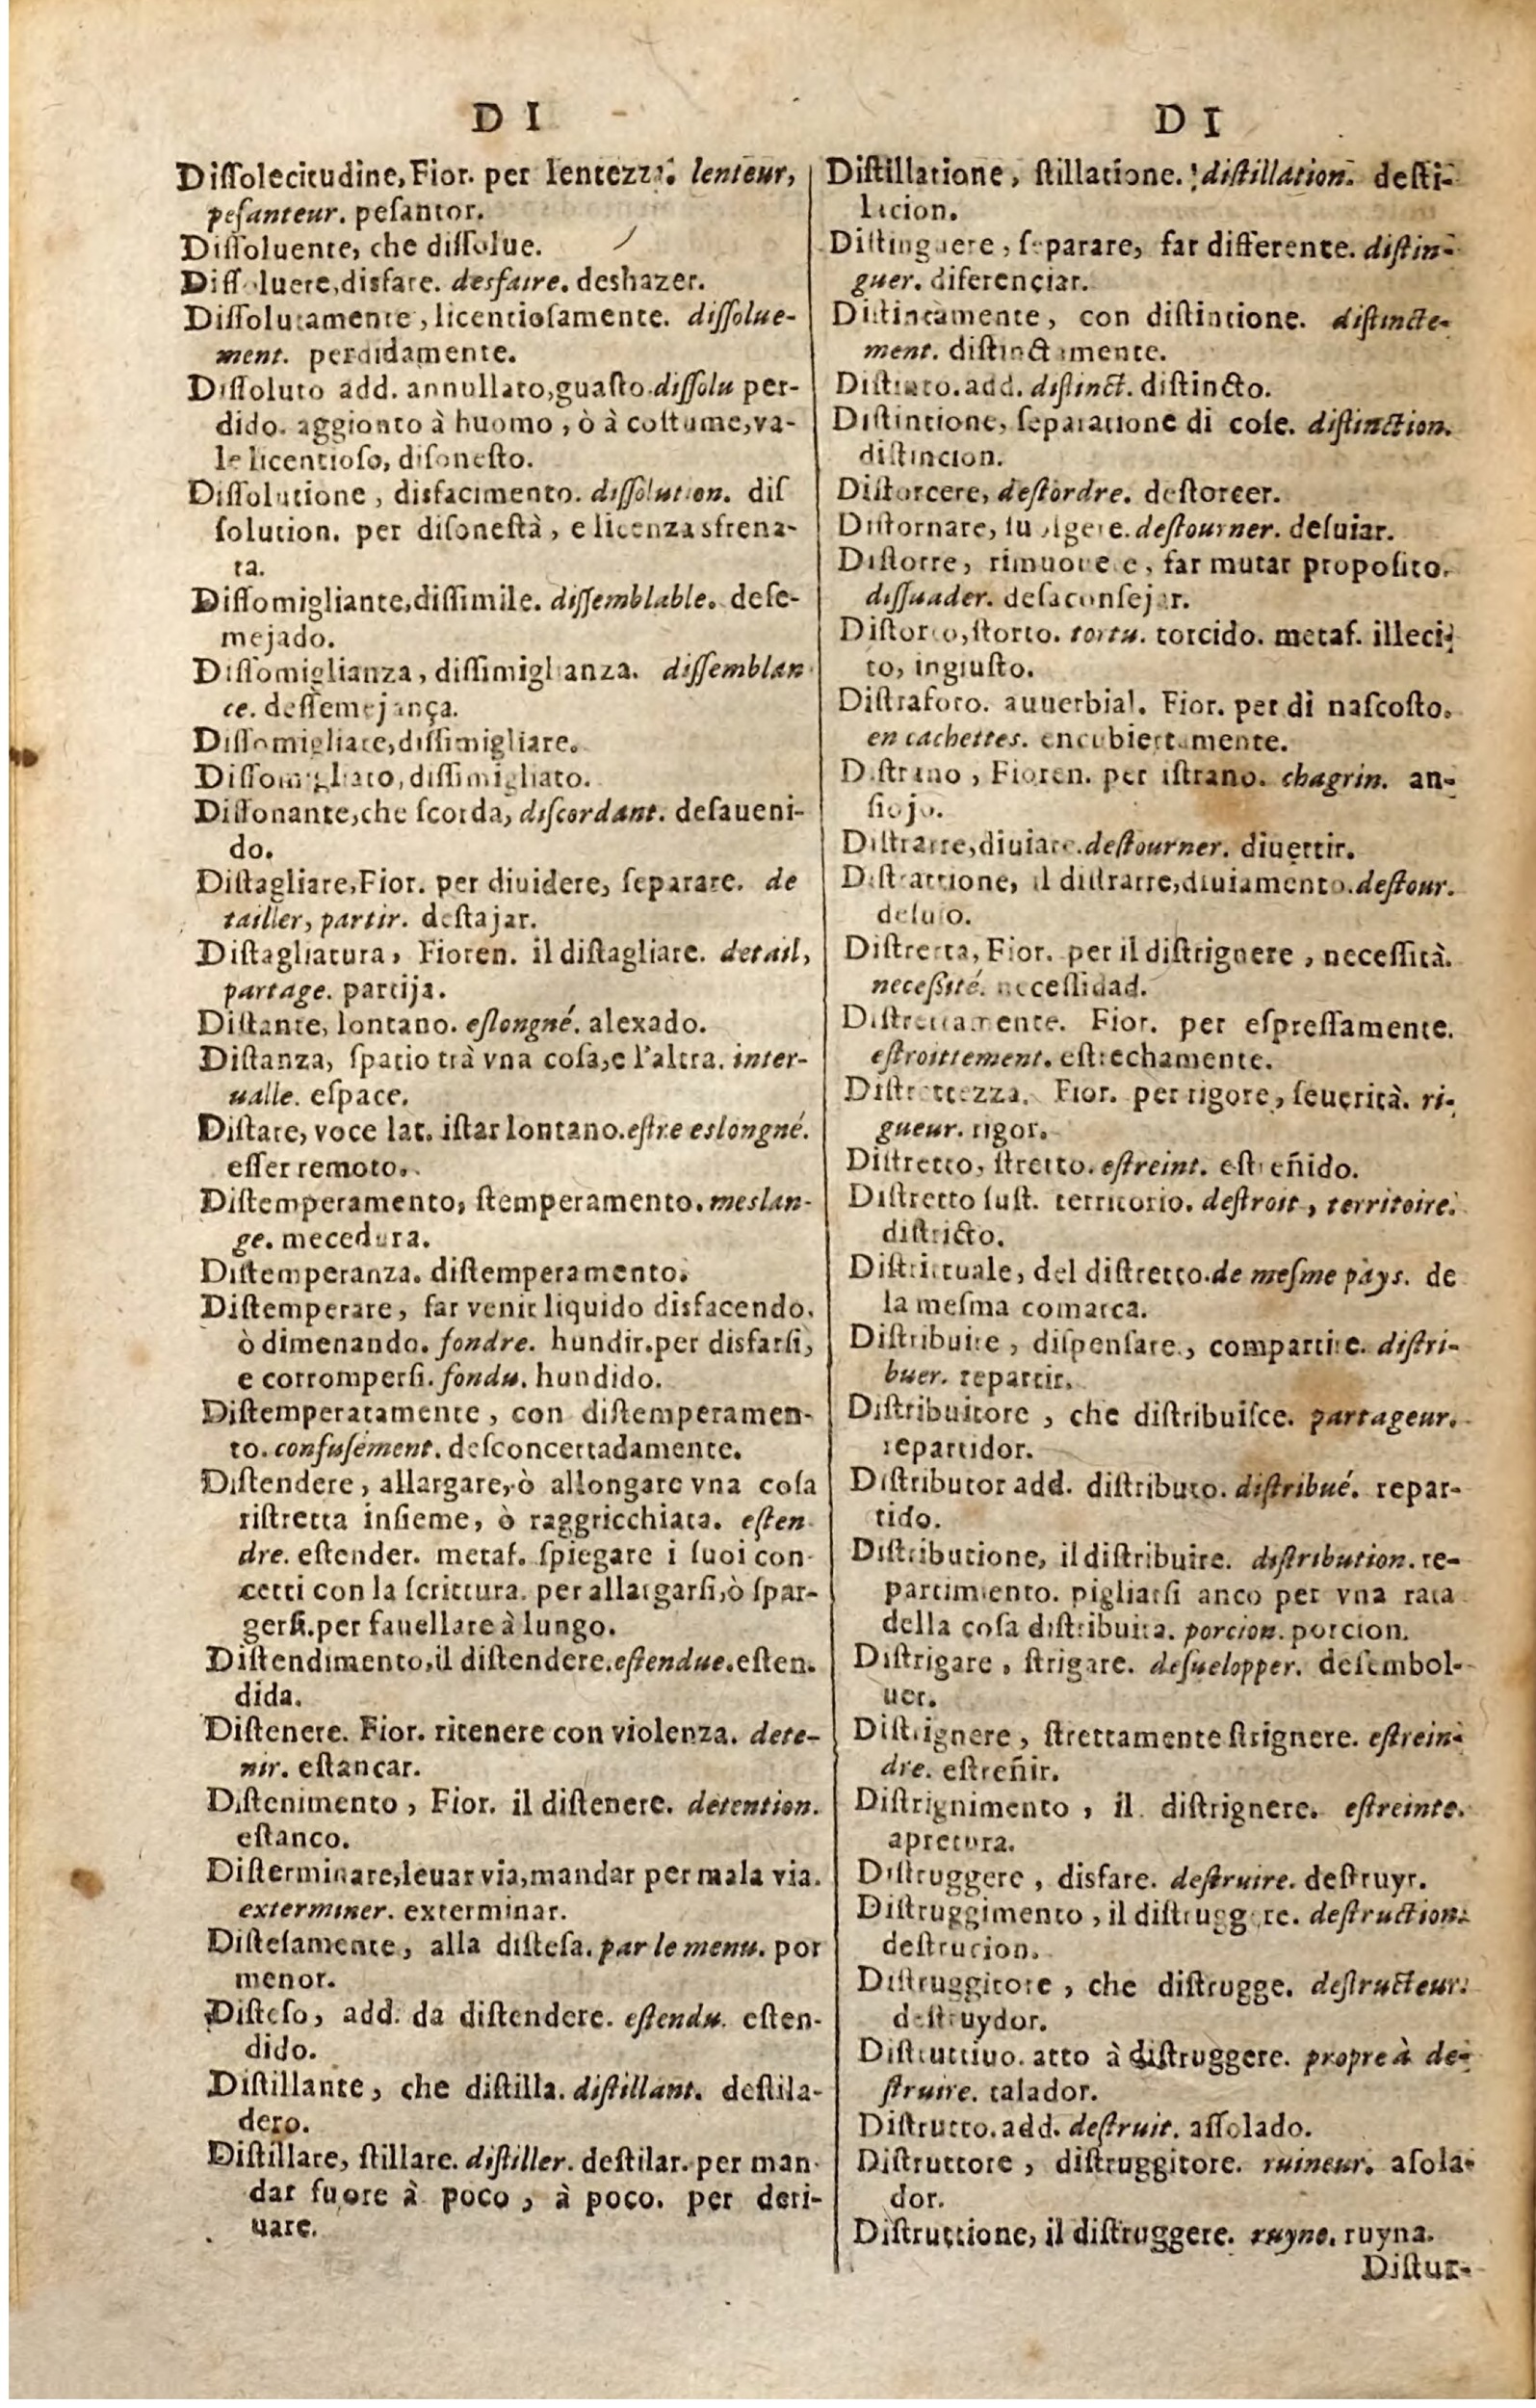 D I
Diſſolecitudine, Fior. per lentezza. lenteur,
peſanteur. peſantor.
Diſſoluente, che diſſolue.
Diſſoluere, disfare. desfaire. deshazer.
Diſſolutamente, licentioſamente. diſſolue-
ment. perdidamente.
Diſſoluto add. annullato, guaſto. diſſolu per-
dido. aggionto à huomo, ò à coſtume, va-
le licentioſo, diſoneſto.
Diſſolutione, disfacimento. diſſolution. diſ
ſolution. per diſoneſtà, e licenza sfrena-
ta.
Diſſomigliante, diſſimile. diſſemblable. deſe-
mejado.
Diſſomiglianza, diſſimiglianza. diſſemblan
ce. deſſemejança.
Diſſomigliare, diſſimigliare.
Diſſomigliato, diſſimigliato.
Diſſonante, che ſcorda, diſcordant. deſaueni-
do.
Diſtagliare, Fior. per diuidere, ſeparare. de
tailler, partir. deſtajar.
Diſtagliatura, Fioren. il diſtagliare. detail,
partage. partija.
Diſtante, lontano. eſlongné. alexado.
Diſtanza, ſpatio trà vna coſa, e l'altra. inter-
ualle. eſpace.
Diſtare, voce lat. iſtar lontano. eſtre eslongné.
eſſer remoto.
Diſtemperamento, ſtemperamento. meslan-
ge. mecedura.
Diſtemperanza. diſtemperamento.
Diſtemperare, far venir liquido disfacendo.
ò dimenando. fondre. hundir. per disfarſi,
e corromperſi. fondu. hundido.
Diſtemperatamente, con diſtemperamen-
to. confuſément. deſconcertadamente.
Diſtendere, allargare, ò allongare vna coſa
riſtretta inſieme, ò raggricchiata. eſten
dre. eſtender. metaf. ſpiegare i ſuoi con-
cetti con la ſcrittura. per allargarſi, ò ſpar-
gerſi. per fauellare à lungo.
Diſtendimento, il diſtendere. eſtendue. eſten.
dida.
Diſtenere. Fior. ritenere con violenza. dete-
nir. eſtancar.
Diſtenimento, Fior. il diſtenere. detention.
eſtanco.
Diſterminare, leuar via, mandar per mala via.
exterminer. exterminar.
Diſteſamente, alla diſteſa. par le menu. por
menor.
Diſteſo, add. da diſtendere. eſtendu. eſten-
dido.
Diſtillante, che diſtilla. diſtillant. deſtila-
dero.
Diſtillare, ſtillare. diſtiller. deſtilar. per man-
dar fuore à poco, à poco. per deri-
uare.
D I
Diſtillatione, ſtillatione. diſtillation. deſti-
lacion.
Diſtinguere, ſeparare, far differente. diſtin-
guer. diferençiar.
Diſtintamente, con diſtintione. diſtincte-
ment. diſtinctamente.
Diſtinto. add. diſtinct. diſtincto.
Diſtintione, ſeparatione di coſe. diſtinction.
diſtincion.
Diſtorcere, deſtordre. deſtorcer.
Diſtornare, ſuolgere. deſtourner. deſuiar.
Diſtorre, rimuouere, far mutar propoſito.
diſſuader. deſaconſejar.
Diſtorto, ſtorto. tortu. torcido. metaf. illeci-
to, ingiuſto.
Diſtraforo. auuerbial. Fior. per dì naſcoſto.
en cachettes. encubiertamente.
Diſtrano, Fioren. per iſtrano. chagrin. an-
ſiojo.
Diſtrarre, diuiare. deſtourner. diuertir.
Diſtrattione, il diſtrarre, diuiamento. deſtour.
deſuio.
Diſtretta, Fior. per il diſtrignere, neceſſità.
neceſsité. neceſſidad.
Diſtrettamente. Fior. per eſpreſſamente.
eſtroittement. eſtrechamente.
Diſtrettezza. Fior. per rigore, ſeuerità. ri-
gueur. rigor.
Diſtretto, ſtretto. eſtreint. eſtreñido.
Diſtretto ſuſt. territorio. deſtroit, territoire.
diſtricto.
Diſtrittuale, del diſtretto. de meſme pays. de
la meſma comarca.
Diſtribuire, diſpenſare, compartire. diſtri-
buer. repartir.
Diſtribuitore, che diſtribuiſce. partageur.
repartidor.
Diſtributor add. diſtributo. diſtribué. repar-
tido.
Diſtributione, il diſtribuire. diſtribution. re-
partimiento. pigliarſi anco per vna rata
della coſa diſtribuita. porcion. porcion.
Diſtrigare, ſtrigare. deſuelopper. deſembol-
uer.
Diſtrignere, ſtrettamente ſtrignere. eſtrein-
dre. eſtreñir.
Diſtrignimento, il diſtrignere. eſtreinte.
apretura.
Diſtruggere, disfare. deſtruire. deſtruyr.
Diſtruggimento, il diſtruggere. deſtruction.
deſtrucion.
Diſtruggitore, che diſtrugge. deſtructeur.
deſtruydor.
Diſtruttiuo. atto à diſtruggere. propre à de-
ſtruire. talador.
Diſtrutto. add. deſtruit. aſſolado.
Diſtruttore, diſtruggitore. ruineur. aſola-
dor.
Diſtruttione, il diſtruggere. ruyne. ruyna.
Diſtur-